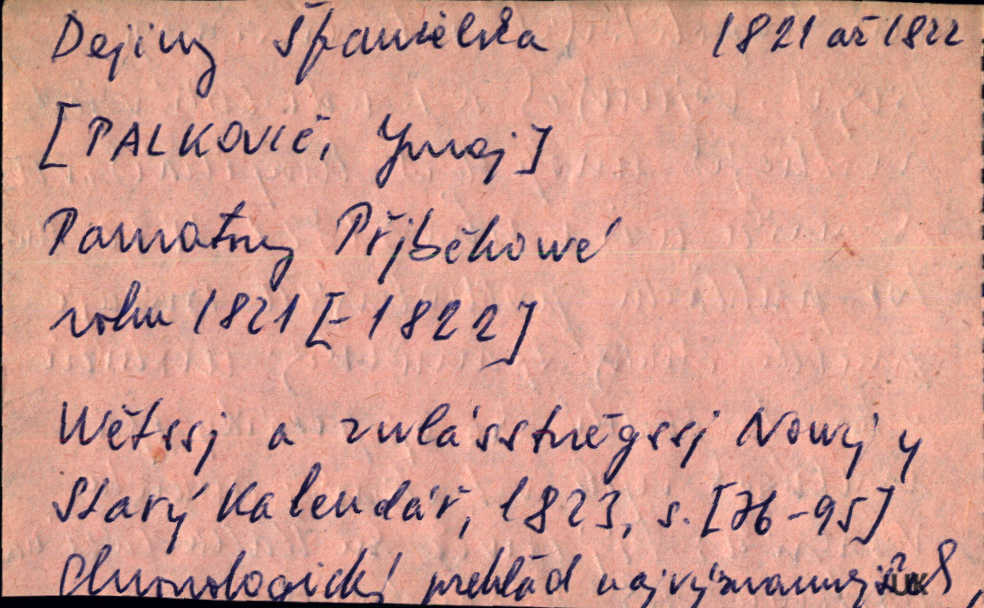 Dejiny Španielska 1821 až 1822
[PALKOVIČ, Juraj]
Pamatny Přjběhowé
roku 1821 [-1822]
Wětssj a zwlásstněgssj Nowý y
Starý Kalendář, 1823, s. [76-95]
Chronologický prehľad